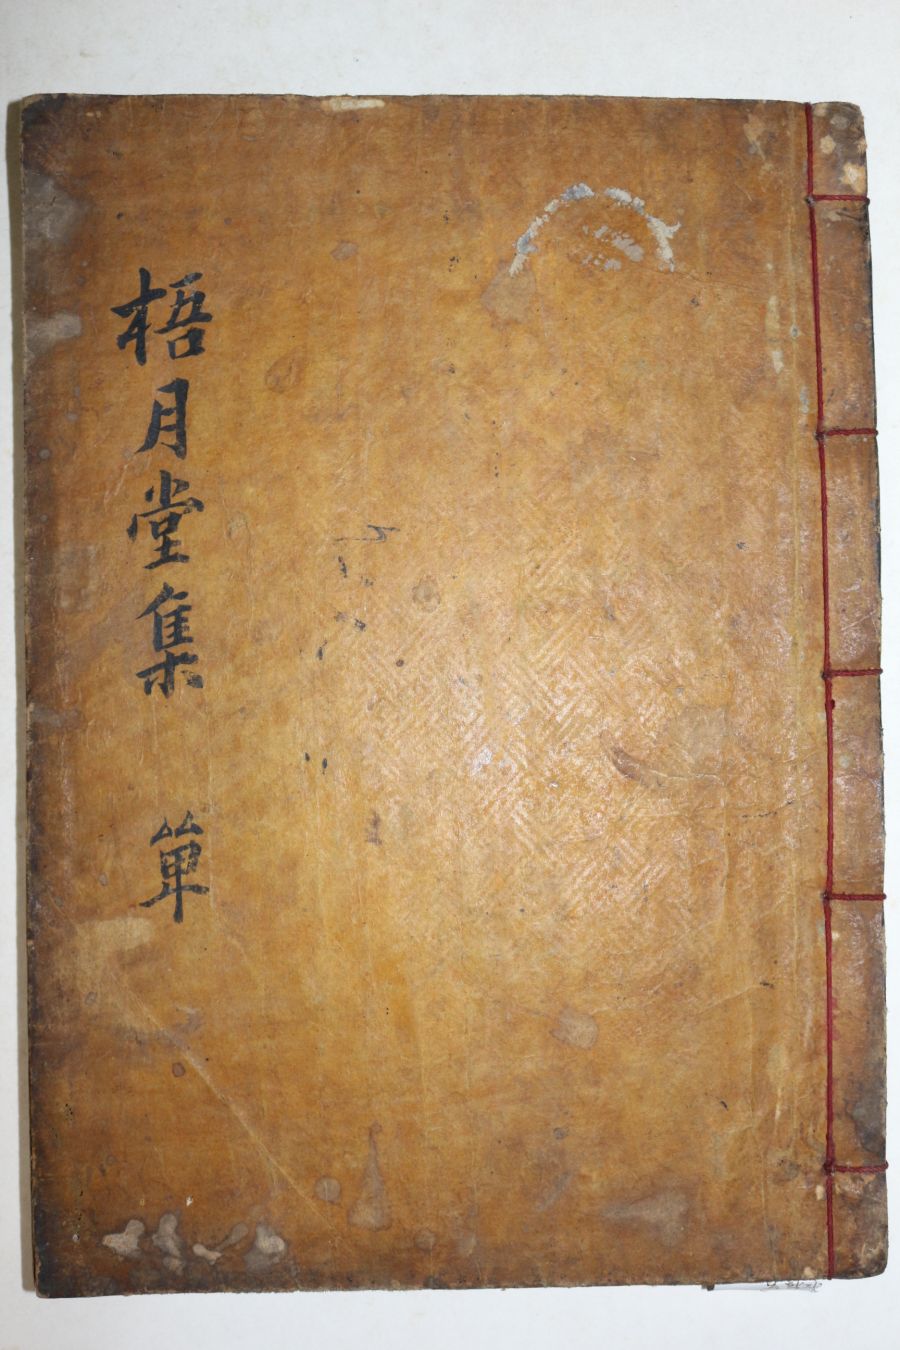 梧月堂集 單